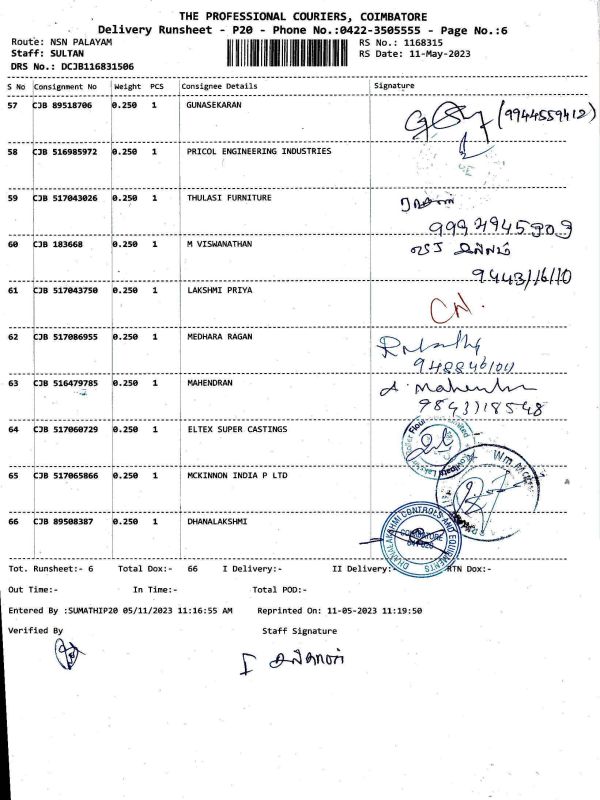 THE PROFESSIONAL COURIERS, COIMBATORE
Delivery Runsheet - P20 - Phone No.:0422-3505555 - Page No.:6
Route: NSN PALAYAM RS No.: 1168315
Staff: SULTAN RS Date: 11-May-2023
DRS No.: DCJB116831506
S No Consignment No Weight PCS Consignee Details Signature
57 CJB 89518706 0.250 1 GUNASEKARAN (9944559412)
58 CJB 516985972 0.250 1 PRICOL ENGINEERING INDUSTRIES
59 CJB 517043026 0.250 1 THULASI FURNITURE
60 CJB 183668 0.250 1 M VISWANATHAN
61 CJB 517043750 0.250 1 LAKSHMI PRIYA
CN.
62 CJB 517086955 0.250 1 MEDHARA RAGAN
63 CJB 516479785 0.250 1 MAHENDRAN
9843118548
64 CJB 517060729 0.250 1 ELTEX SUPER CASTINGS
65 CJB 517065866 0.250 1 MCKINNON INDIA P LTD
66 CJB 89508387 0.250 1 DHANALAKSHMI
DHANALAKSHMI CONTROLS AND EQUIPMENTS
COIMBATORE
Tot. Runsheet:- 6 Total Dox:- 66 I Delivery:- II Delivery:- RTN Dox:-
Out Time:- In Time:- Total POD:-
Entered By :SUMATHIP20 05/11/2023 11:16:55 AM Reprinted On: 11-05-2023 11:19:50
Verified By Staff Signature